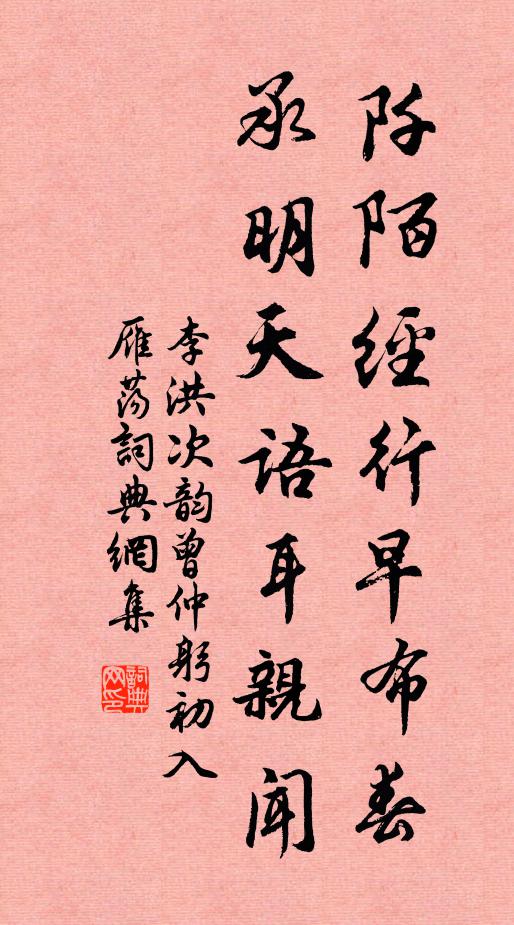 阡陌經行早布春
承明天語耳親聞
李洪次韵曾仲躬初入
雁荡詞典網集
詞典网印